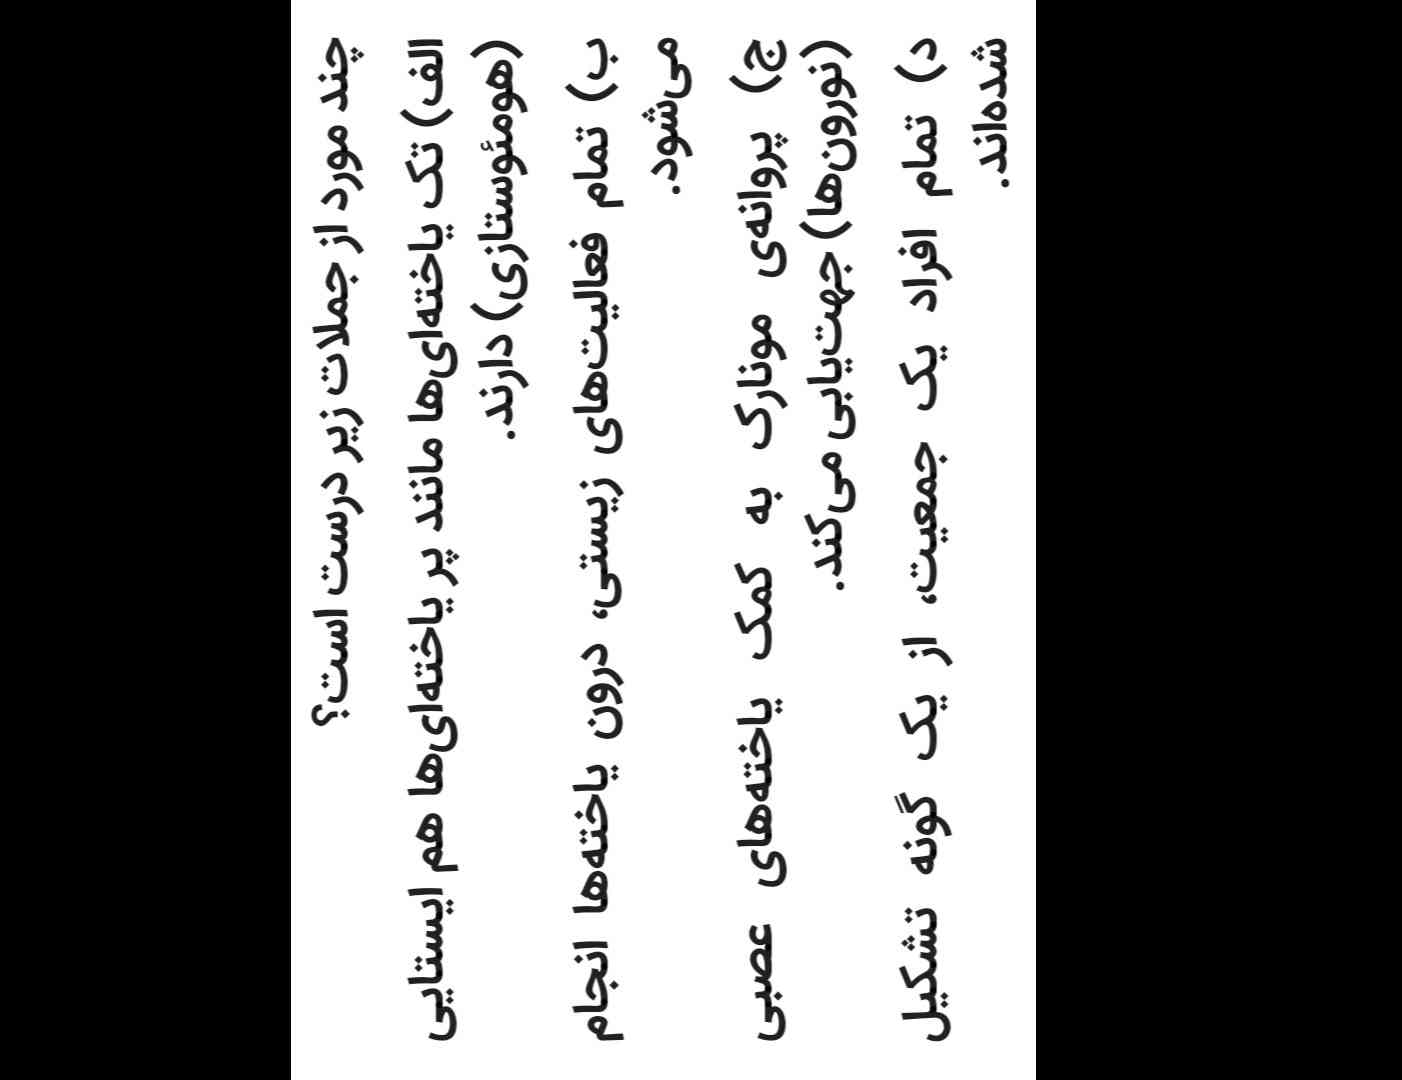 چند مورد از جملات زیر درست است؟
الف) تک یاخته‌ای‌ها مانند پر یاخته‌ای‌ها هم ایستایی
(هومئوستازی) دارند.
ب) تمام فعالیت‌های زیستی، درون یاخته‌ها انجام
می‌شود.
ج) پروانه‌ی مونارک به کمک یاخته‌های عصبی
(نورون‌ها) جهت‌یابی می‌کند.
د) تمام افراد یک جمعیت، از یک گونه تشکیل
شده‌اند.